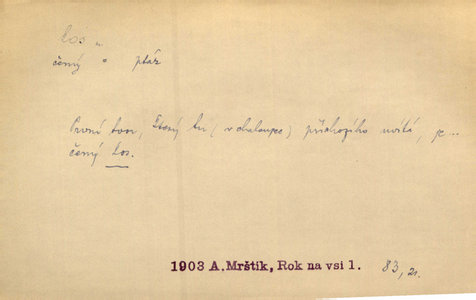 kos m.
černý = pták
První tvor, který tu (v chaloupce) příchozího uvítá, je...
černý kos.
1903 A. Mrštík, Rok na vsi 1. 83, 21.